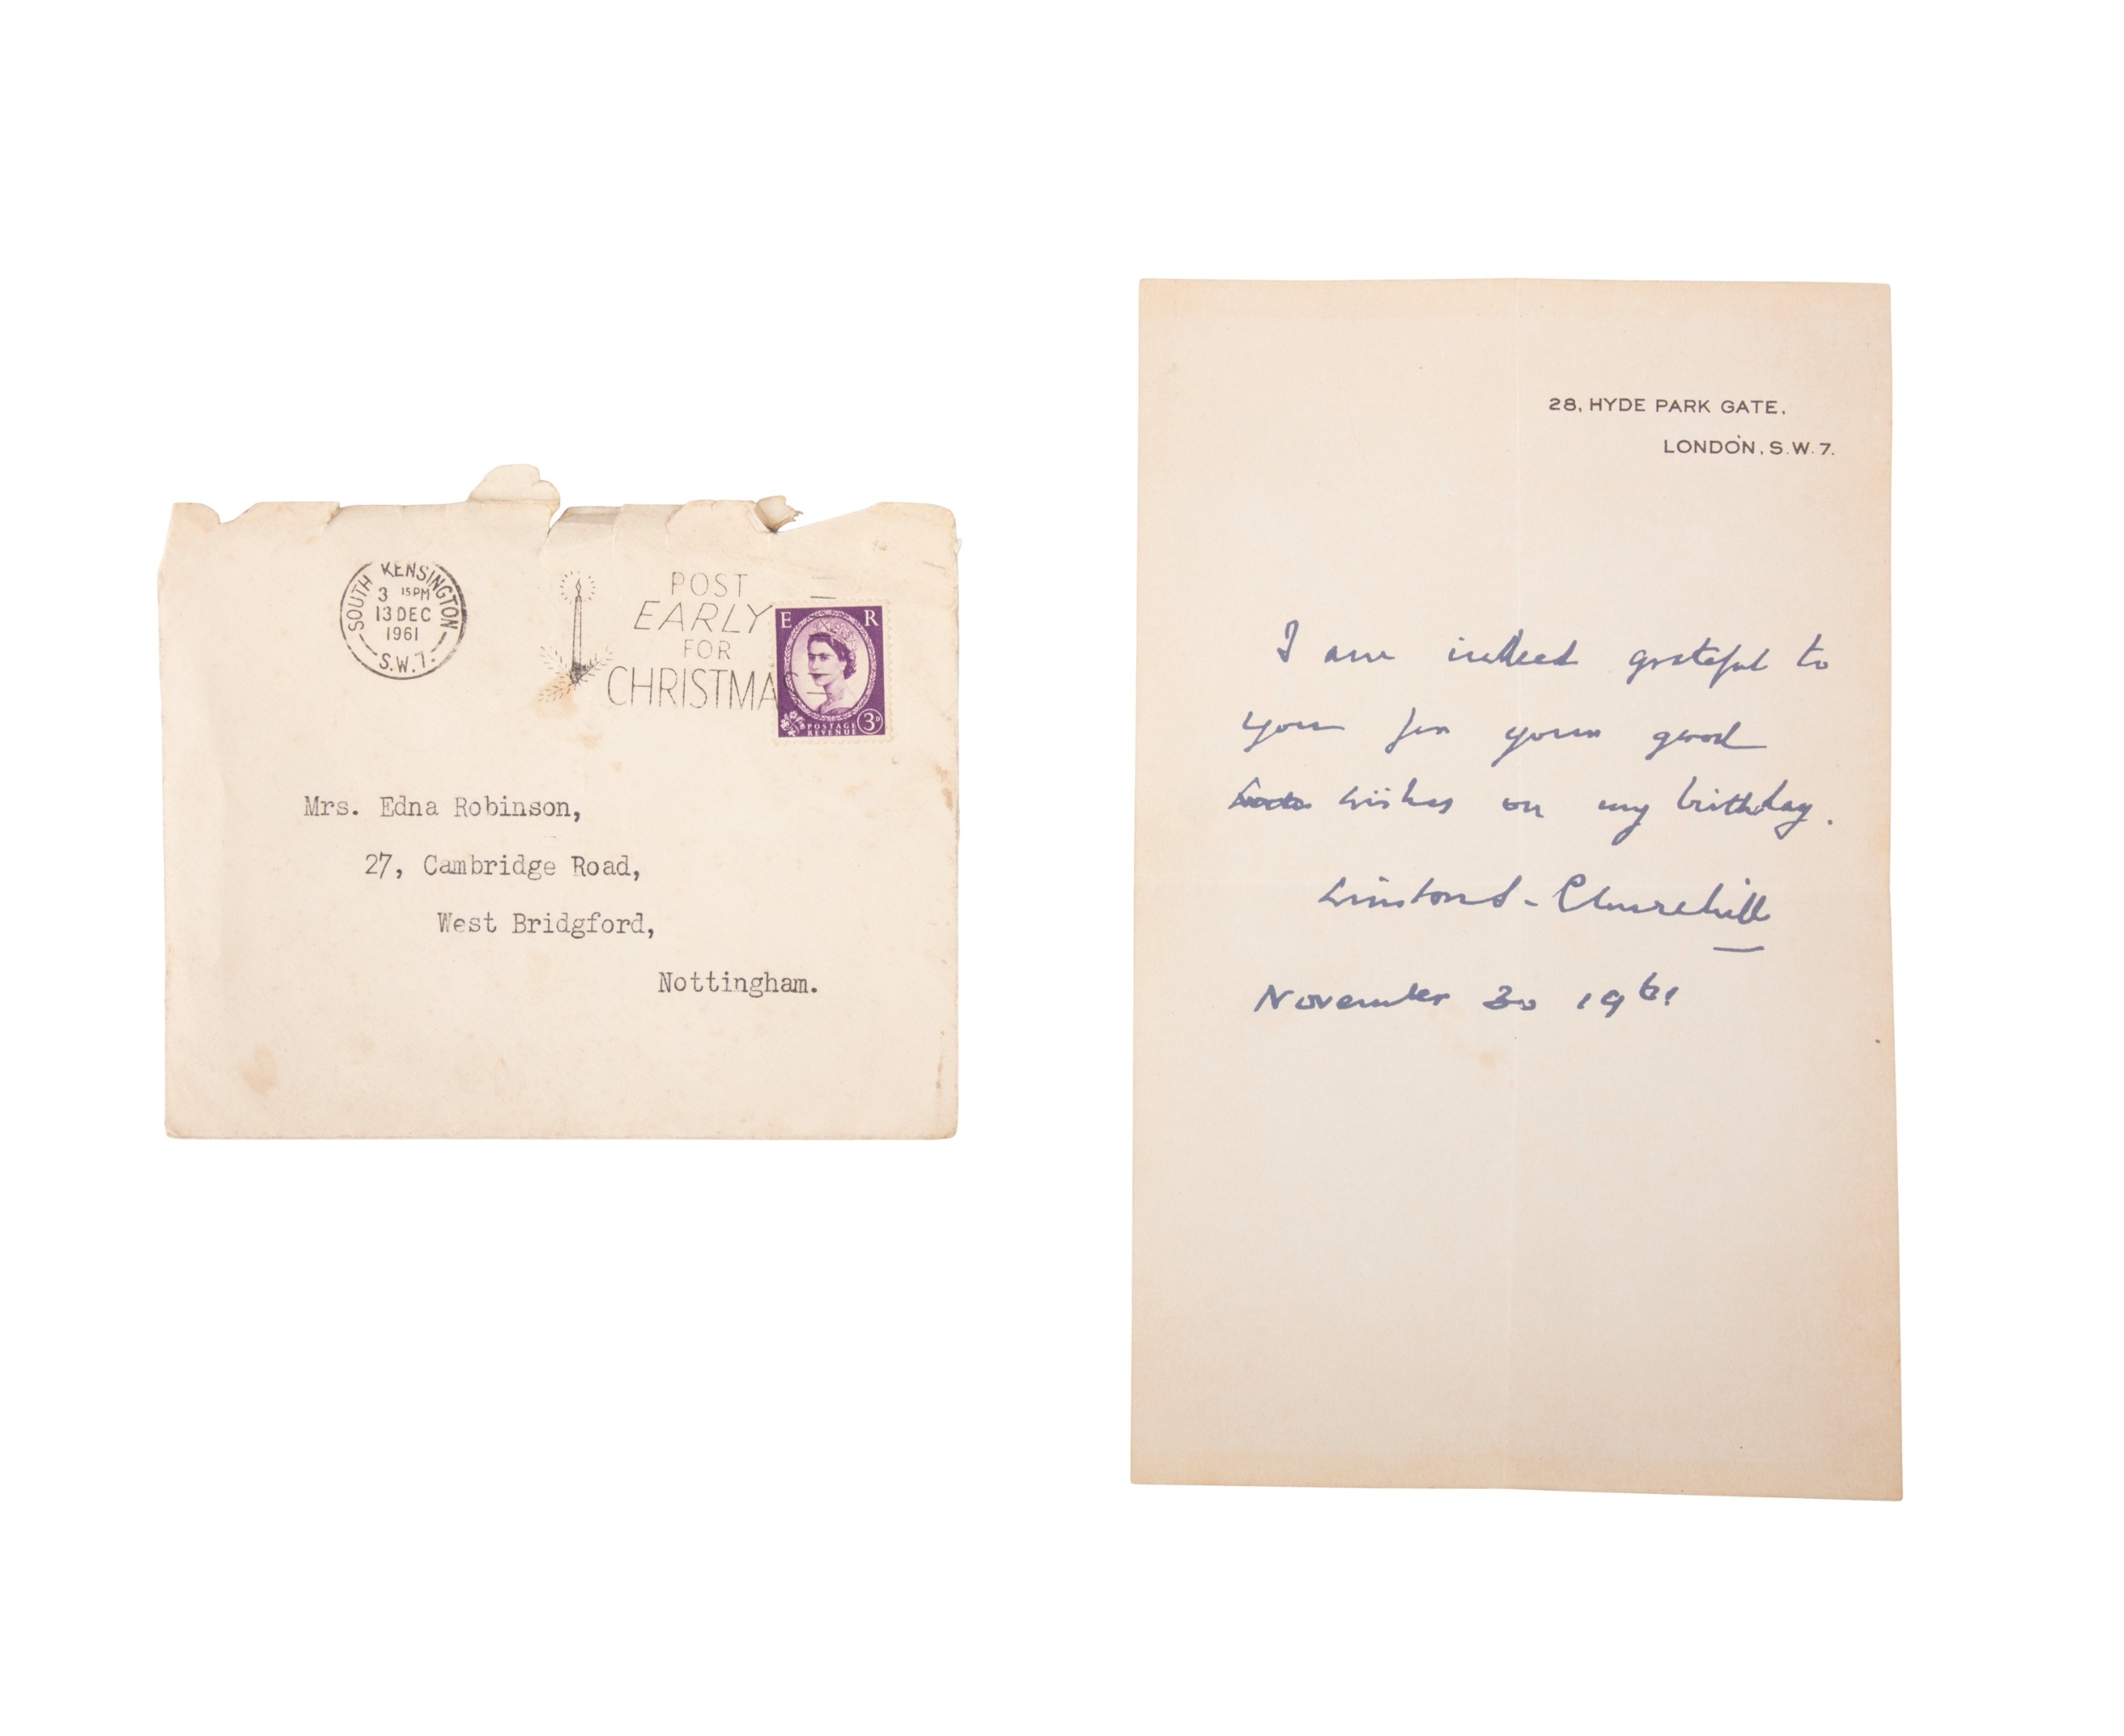 SOUTH KENSINGTON
3 15PM
13 DEC
1961
S.W.7.
POST
EARLY
FOR
CHRISTMA
E R
POSTAGE
REVENUE
3D
Mrs. Edna Robinson,
27, Cambridge Road,
West Bridgford,
Nottingham.
28, HYDE PARK GATE,
LONDON, S.W. 7.
I am indeed grateful to
you for your good
wishes on my birthday.
Winston S. Churchill
November 30 1961